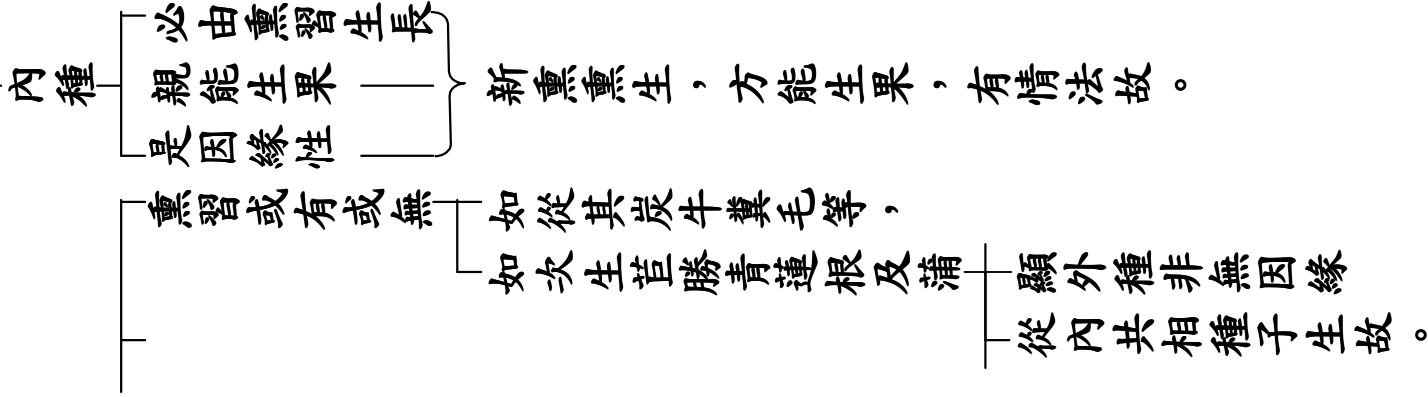 內種
必由熏習生長
親能生果
是因緣性
新熏熏生，方能生果，有情法故。
熏習或有或無
如從其炭牛糞毛等，
如次生苣勝青蓮根及蒲
顯外種非無因緣
從內共相種子生故。